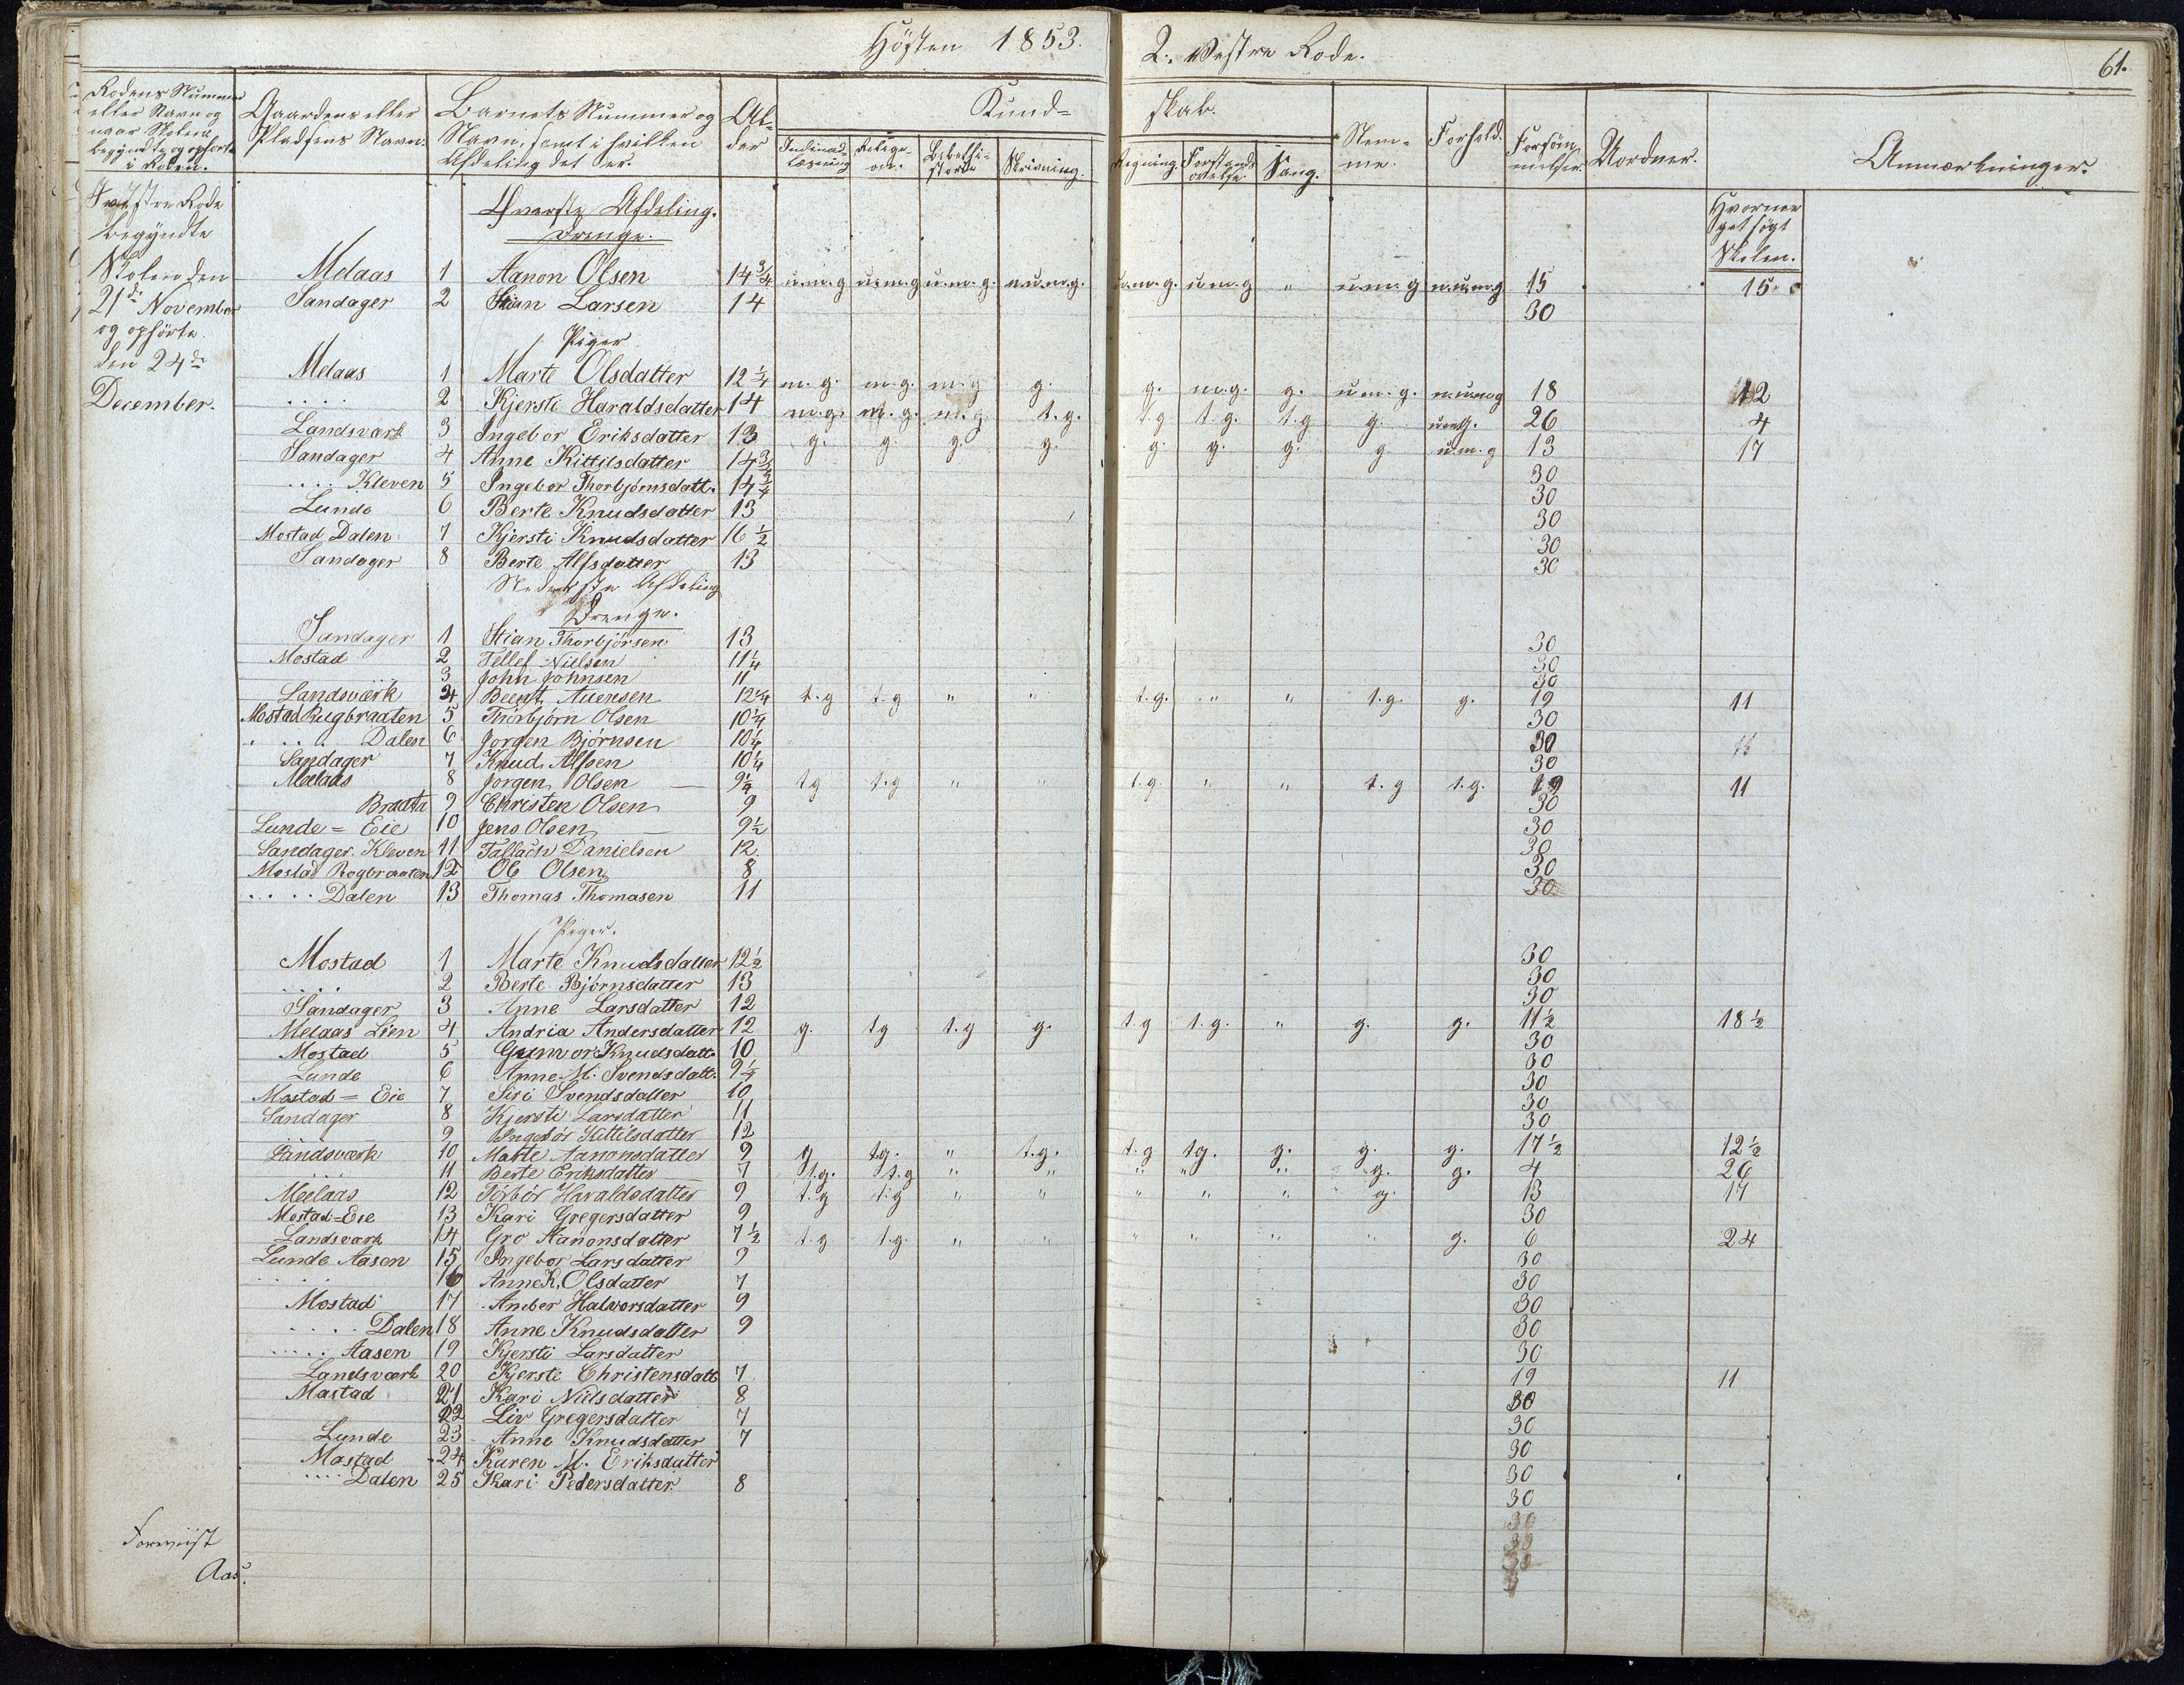 Høsten 1853. 2. Vestre Rode. 61.
Rodens Nummer eller Navn og naar Skolen begyndte og ophørte i Roden.
Gaardens eller Pladsens Navn.
Barnets Nummer og Navn, samt i hvilken Afdeling det er.
Alder
Kundskab.
Indenadlæsning Religion. Bibelhistorie Skrivning. Regning. Forstandsøvelse Sang.
Stemme. Forhold. Forsømmelser. Uordner. Anmærkninger.
I vestre Rode begyndte Skolen den 21de November og ophørte den 24de December.
Øverste Afdeling.
Drenge.
Hvormeget søgt Skolen.
Melaas 1 Aanon Olsen 14 3/4 u.m.g u.m.g u.m.g. n.u.m.g. u.m.g. u.m.g " u.m.g n.u.m.g 15 15
Sandager 2 Stian Larsen 14 30
Piger
Melaas 1 Marte Olsdatter 12 1/4 m.g. m.g. m.g g. g. m.g. g. u.m.g. n.u.m.g 18 12
.... 2 Kjersti Haraldsdatter 14 m.g. m.g. m.g. t.g. t.g t.g. t.g g. u.m.g. 26 4
Landsvark 3 Ingebor Eriksdatter 13 g. g. g. g. g. g. g. g u.m.g 13 17
Sandager 4 Anne Kittilsdatter 14 3/4 30
.... Kleven 5 Ingebor Thorbjørnsdatt. 14 3/4 30
Lunde 6 Berte Knudsdatter 13 30
Mostad Dalen 7 Kjersti Knudsdatter 16 1/2 30
Sandager 8 Berte Alfsdatter 13 30
Nederste Afdeling
Drenge.
Sandager 1 Stian Thorbjörsen 13 30
Mostad 2 Tellef Nielsen 11 1/4 30
.. 3 John Johnsen 11 30
Landsværk 4 Beent Auensen 12 1/4 t.g t.g " " t.g. " " t.g. g. 19 11
Mostad Rugbraaten 5 Thorbjørn Olsen 10 1/4 30
.... Dalen 6 Jorgen Bjørnsen 10 1/4 30
Sandager 7 Knud Alfsen 10 1/4 30
Melaas 8 Jorgen Olsen 9 1/4 tg t.g " " t.g. " " t.g t.g. 19 11
Braata 9 Christen Olsen 9 30
Lunde = Eie 10 Jens Olsen 9 1/2 30
Sandager Kleven 11 Tallach Danielsen 12. 30
Mostad Rogbraaten 12 Ole Olsen 8 30
.... Dalen 13 Thomas Thomasen 11 30
Piger.
Mostad 1 Marte Knudsdatter 12 1/2 30
.... 2 Berte Bjørnsdatter 13 30
Sandager 3 Anne Larsdatter 12 30
Melaas Lien 4 Andria Andersdatter 12 g. tg t.g g. t.g t.g. " g. g. 11 1/2 18 1/2
Mostad 5 Gunvor Knudsdatt. 10 30
Lunde 6 Anne M. Svendsdatt. 9 1/4 30
Mostad = Eie 7 Siri Svendsdatter 10 30
Sandager 8 Kjersti Larsdatter 11 30
.... 9 Ingebór Kittilsdatter 12 30
Landsværk 10 Marte Aanonsdatter 9 g tg. " t.g. t.g tg. g. g. g. 17 1/2 12 1/2
.... 11 Berte Eriksdatter 7 t.g. t.g " " " " " g. g. 4 26
Melaas 12 Torbór Haraldsdatter 9 t.g t.g " " " " " g. 13 17
Mostad=Eie 13 Kari Gregersdatter 9 30
Landsværk 14 Gro Aanonsdatter 7 1/2 t.g t.g. " " " " " " g. 6 24
Lunde Aasen 15 Ingebor Larsdatter 9 30
.... 16 Anne K. Olsdatter 7 30
Mostad 17 Amber Halvorsdatter 9 30
.... Dalen 18 Anne Knudsdatter 9 30
.... Aasen 19 Kjersti Larsdatter 30
Landsværk 20 Kjersti Christensdatt 7 19 11
Mastad 21 Kari Nielsdatter 8 30
22 Liv Gregersdatter 7 30
Lunde 23 Anne Knudsdatter 7 30
Mastad 24 Karen M. Eriksdatter 30
.... Dalen 25 Kari Pedersdatter 8 30
Foreviist
Aas.